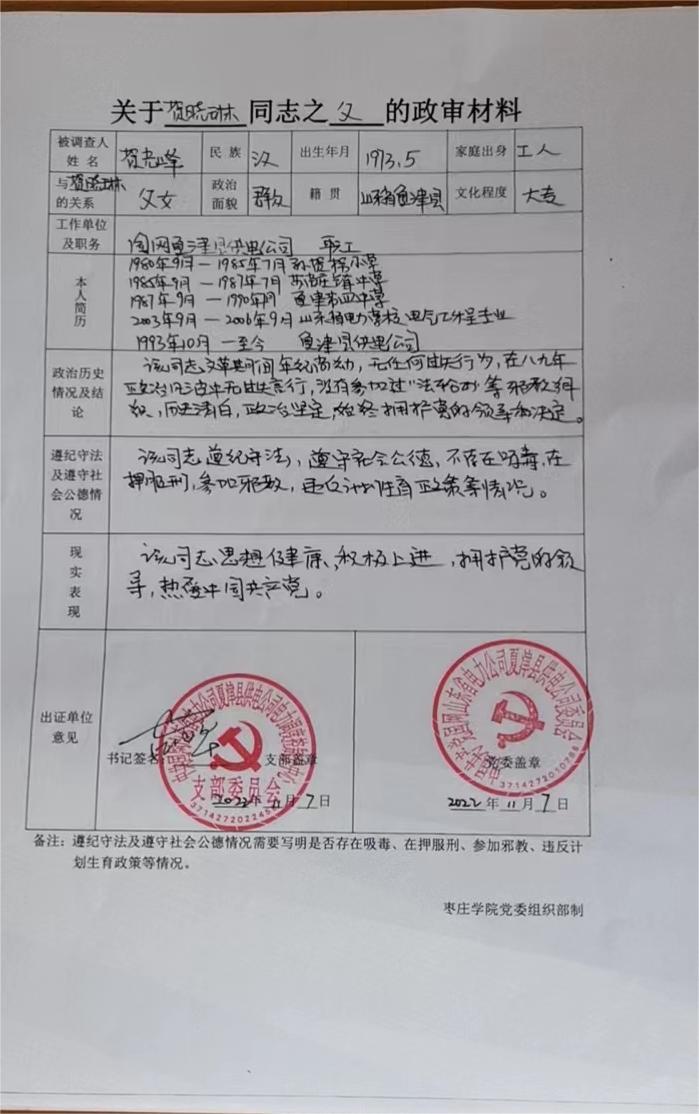 关于贺晓琳同志之父的政审材料
被调查人姓名 贺光峰 民族 汉 出生年月 1973.5 家庭出身 工人
与贺晓琳的关系 父女 政治面貌 群众 籍贯 山东省夏津县 文化程度 大专
工作单位及职务 国网夏津县供电公司 职工
本人简历
1980年9月—1985年7月
1985年9月—1987年7月
1987年9月—1990年 月
2003年9月—2006年9月 山东省电力学校电气工程专业
1993年10月—至今 夏津县供电公司
政治历史情况及结论
该同志文革期间年纪尚幼,无任何过失行为,在八九年
政治风波中无过失言行,没有参加过“法轮功”等邪教组
织,历史清白,政治坚定,始终拥护党的领导和决定。
遵纪守法及遵守社会公德情况
该同志遵纪守法,遵守社会公德,不存在吸毒、在
押服刑,参加邪教,违反计划生育政策等情况。
现实表现
该同志思想健康、积极上进,拥护党的领
导,热爱中国共产党。
出证单位意见
书记签名: 支部盖章
支部委员会
2022年11月7日
党委盖章
3714272010788
2022年11月7日
备注:遵纪守法及遵守社会公德情况需要写明是否存在吸毒、在押服刑、参加邪教、违反计
划生育政策等情况。
枣庄学院党委组织部制